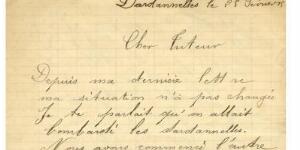 Dardannelles le 28 Février
Cher Tuteur
Depuis ma dernière lettre
ma situation n'a pas changée
Je te parlait qu'on allait
bombardé les Dardanelles.
Nous avons commencé l'autre